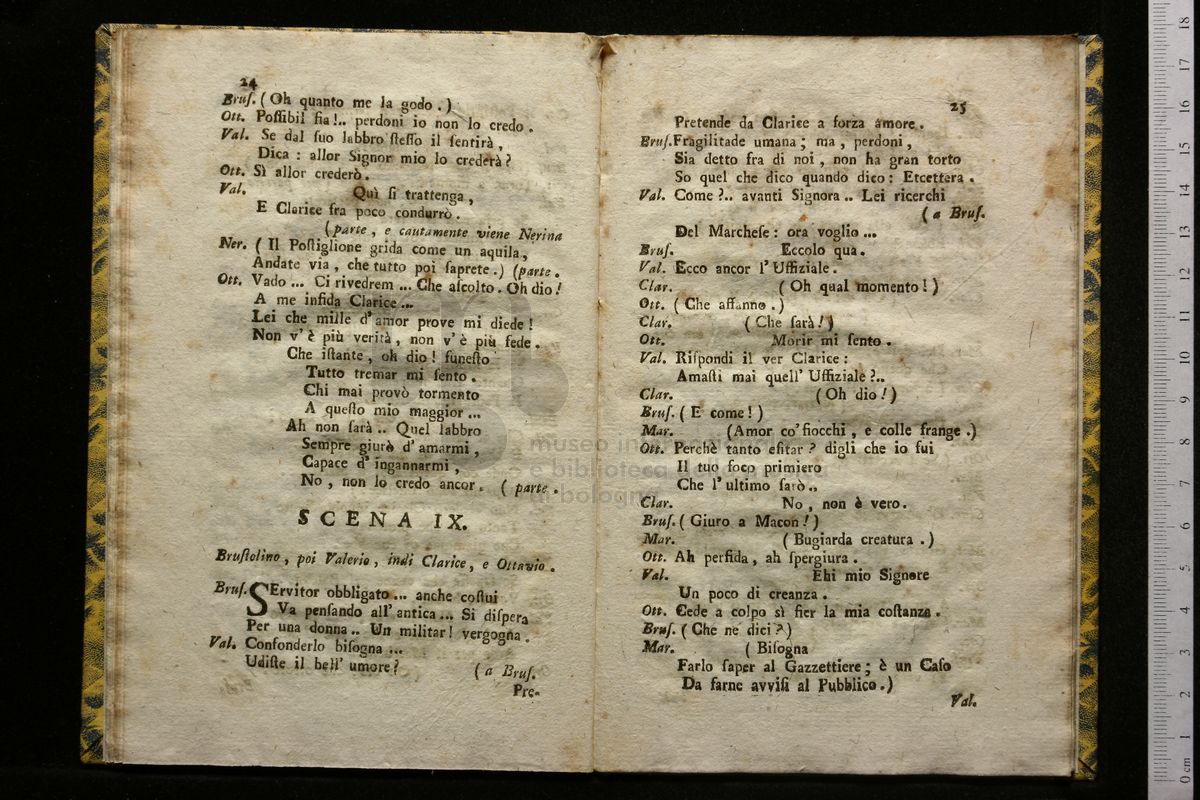 24
Bruſ. ( Oh quanto me la godo . )
Ott. Poſſibil ſia !.. perdoni io non lo credo .
Val. Se dal ſuo labbro ſteſſo il ſentirà ,
Dica : allor Signor mio lo crederà ?
Ott. Sì allor crederò .
Val. Quì ſi trattenga ,
E Clarice fra poco condurrò .
(parte , e cautamente viene Nerina
Ner. ( Il Poſtiglione grida come un aquila,
Andate via , che tutto poi ſaprete .) (parte .
Ott. Vado ... Ci rivedrem ... Che aſcolto . Oh dio !
A me infida Clarice ...
Lei che mille d' amor prove mi diede !
Non v' è più verità , non v' è più fede .
Che iſtante , oh dio ! funeſto
Tutto tremar mi ſento .
Chi mai provò tormento
A queſto mio maggior ...
Ah non ſarà .. Quel labbro
Sempre giurò d' amarmi ,
Capace d' ingannarmi ,
No , non lo credo ancor . ( parte .
SCENA IX.
Bruſtolino , poi Valerio , indi Clarice , e Ottavio .
Bruſ. SErvitor obbligato ... anche coſtui
Va penſando all' antica ... Si diſpera
Per una donna .. Un militar ! vergogna .
Val. Confonderlo biſogna ...
Udiſte il bell' umore ? ( a Bruſ.
Pre-
25
Pretende da Clarice a forza amore .
Bruſ. Fragilitade umana ; ma , perdoni ,
Sia detto fra di noi , non ha gran torto
So quel che dico quando dico : Etcettera .
Val. Come ?.. avanti Signora .. Lei ricerchi
( a Bruſ.
Del Marcheſe : ora voglio ...
Bruſ. Eccolo qua .
Val. Ecco ancor l' Uffiziale .
Clar. ( Oh qual momento ! )
Ott. ( Che affanno . )
Clar. ( Che ſarà ! )
Ott. Morir mi ſento .
Val. Riſpondi il ver Clarice :
Amaſti mai quell' Uffiziale ?..
Clar. ( Oh dio ! )
Bruſ. ( E come ! )
Mar. (Amor co' fiocchi , e colle frange .)
Ott. Perchè tanto eſitar ? digli che io fui
Il tuo foco primiero
Che l' ultimo ſarò ..
Clar. No , non è vero .
Bruſ. ( Giuro a Macon ! )
Mar. ( Bugiarda creatura . )
Ott. Ah perfida , ah ſpergiura .
Val. Ehi mio Signore
Un poco di creanza .
Ott. Cede a colpo sì fier la mia coſtanza .
Bruſ. ( Che ne dici ? )
Mar. ( Biſogna
Farlo ſaper al Gazzettiere ; è un Caſo
Da farne avviſi al Pubblico . )
Val.
museo
e biblioteca
di bologna
0 cm 1 2 3 4 5 6 7 8 9 10 11 12 13 14 15 16 17 18